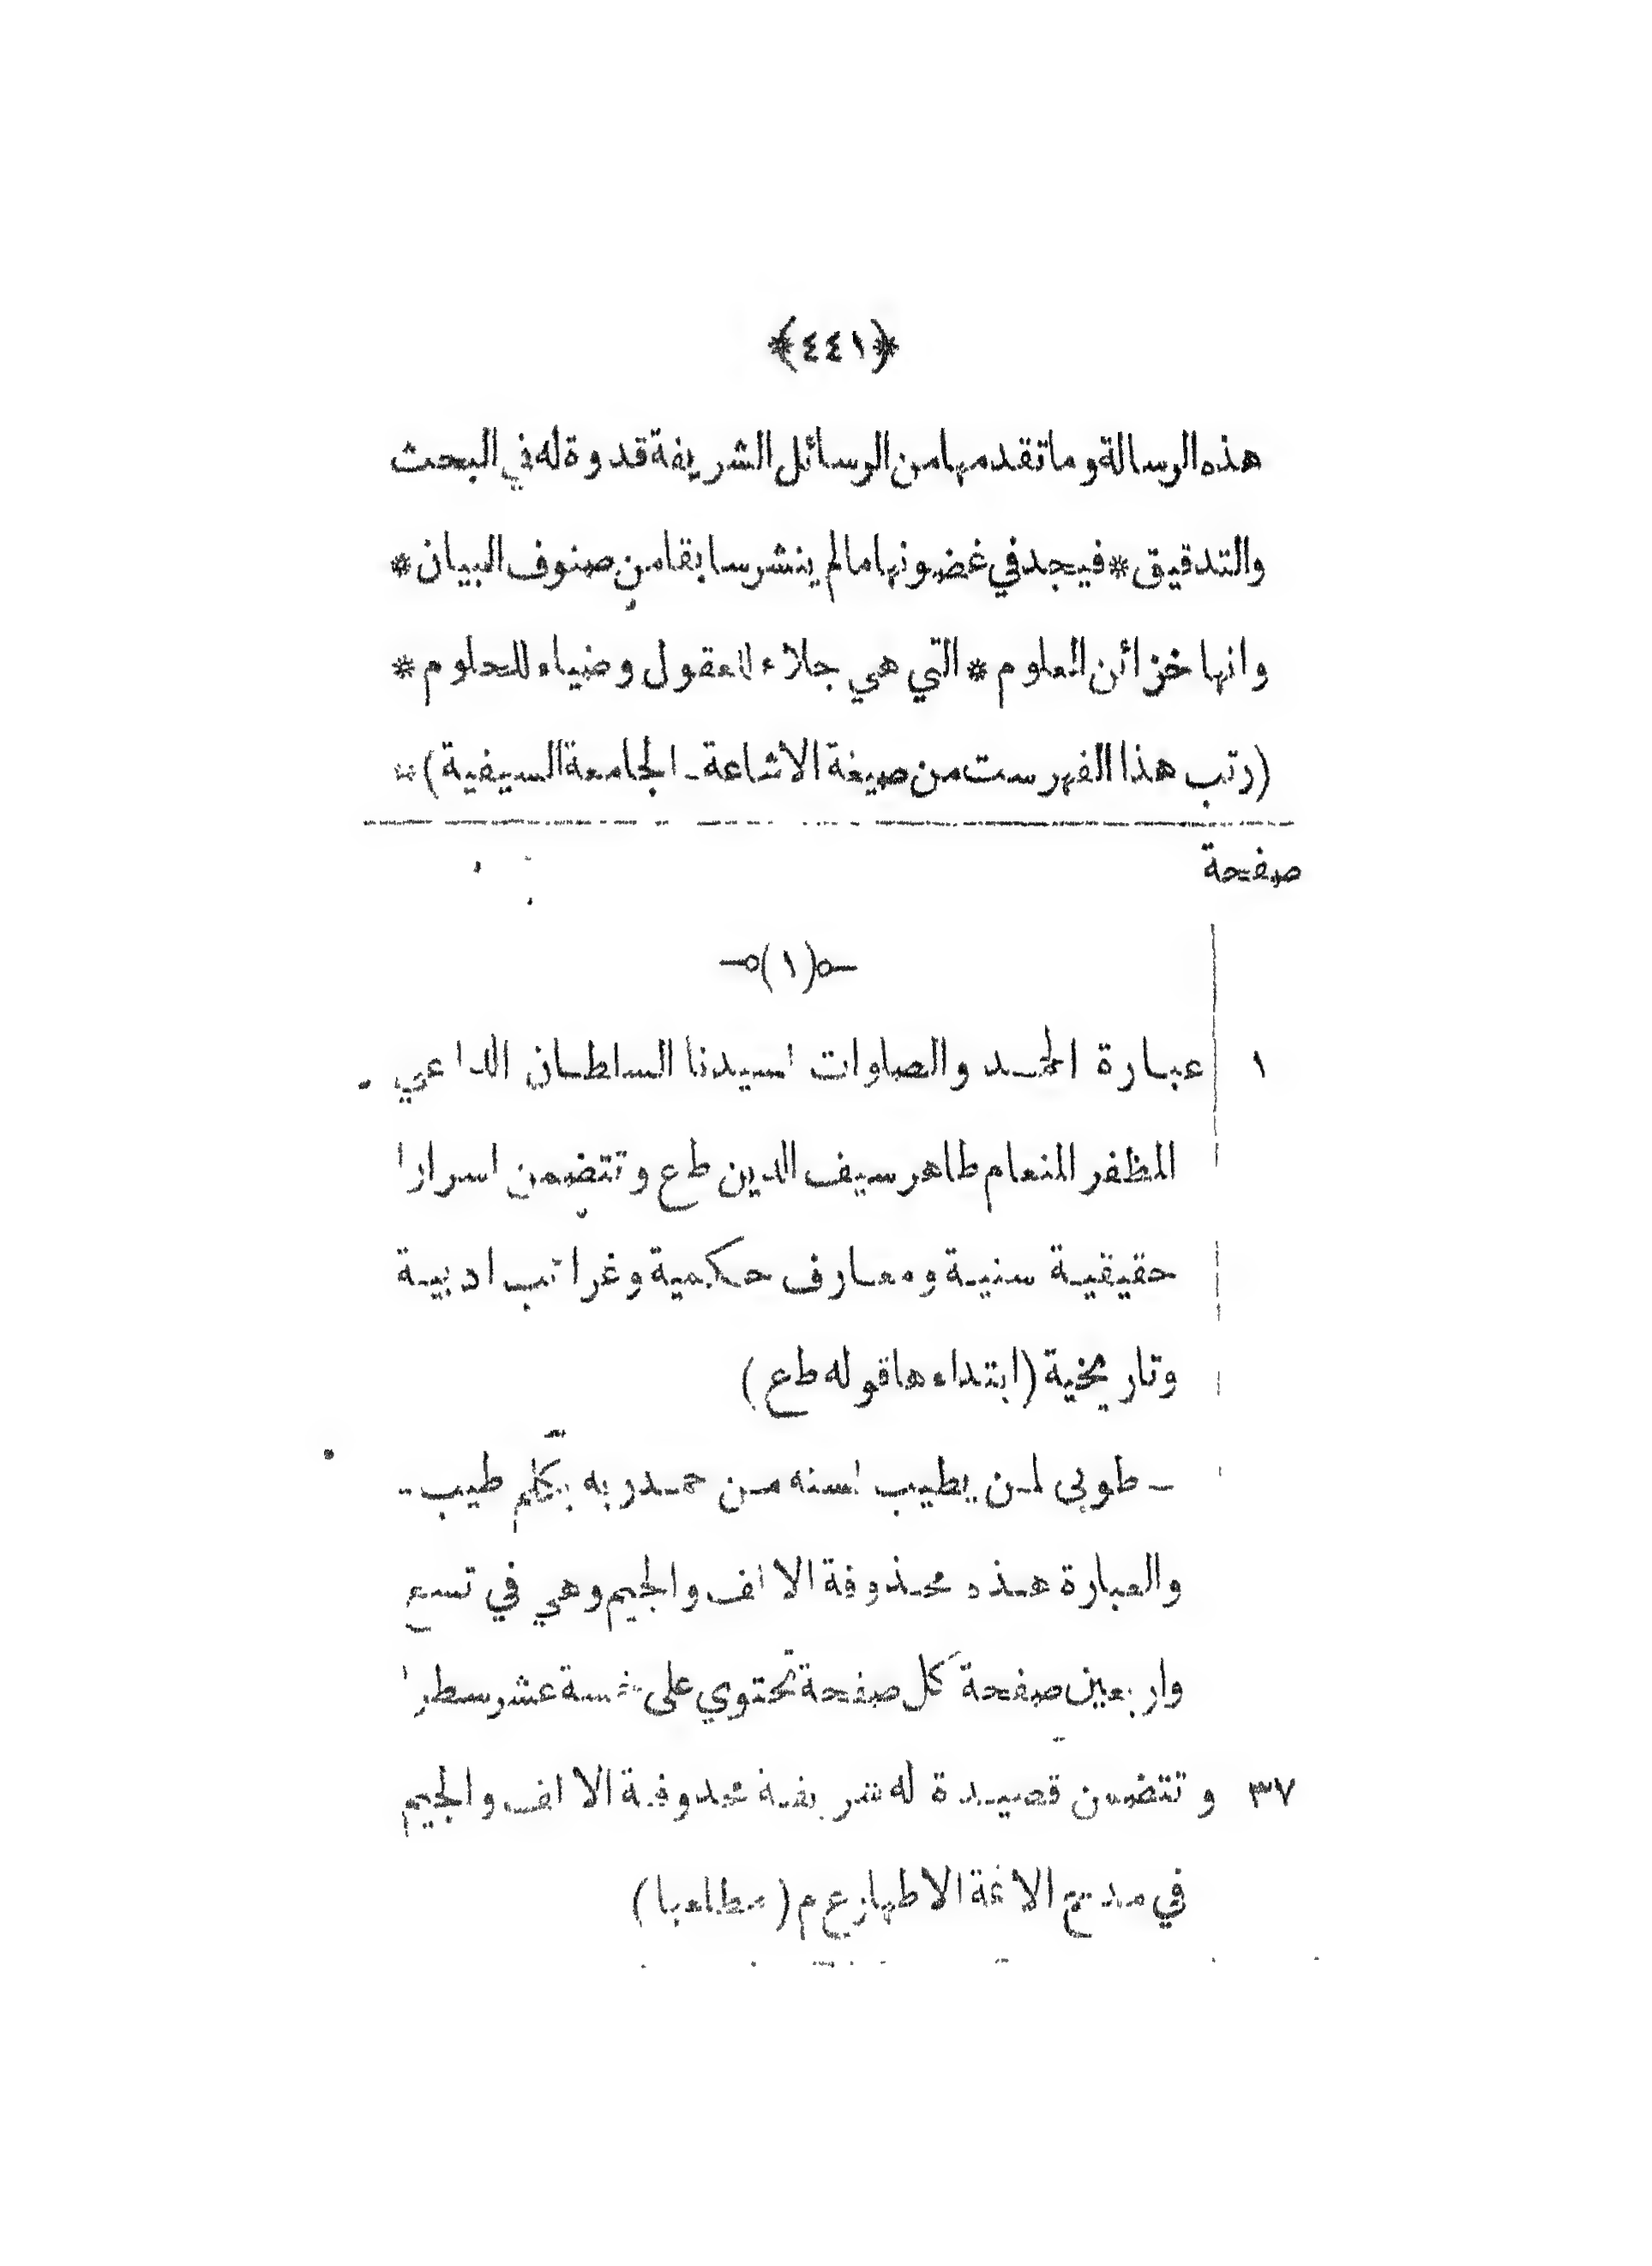 ﴿٤٤١﴾
هذه الرسالة وما تقدمها من الرسائل الشريفة قدوة له في البحث
والتدقيق * فيجد في غضونها مالم ينشر سابقا من صنوف البيان *
وانها خزائن العلوم * التي هي جلاء للعقول وضياء للحلوم *
(رتب هذا الفهرست من صيغة الاشاعة ـ الجامعة السيفية) *
صفحة
(١)
١ عبارة الحمد والصلوات لسيدنا السلطان الداعي
المظفر المنعام طاهر سيف الدين ط ع وتتضمن اسرارا
حقيقية سنية ومعارف حكمية وغرائب ادبية
وتاريخية (ابتداءها قوله ط ع)
ـ طوبى لمن يطيب لسنه من حمد ربه بكلم طيب ـ
والعبارة هذه محذوفة الالف والجيم وهي في تسع
واربعين صفحة كل صفحة تحتوي على خمسة عشر سطرا
٣٧ وتتضمن قصيدة له شريفة محذوفة الالف والجيم
في مديح الائمة الاطهار ع م (مطلعها)